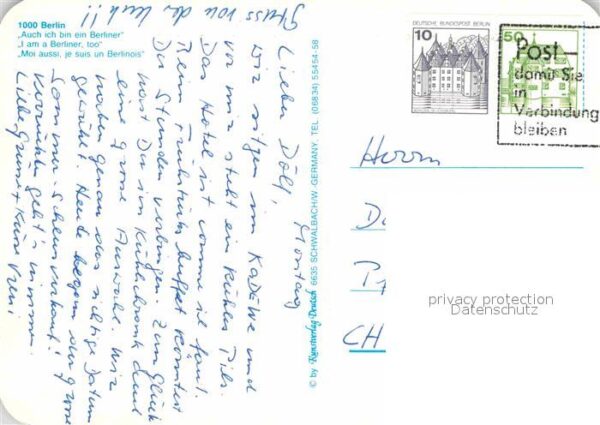 1000 Berlin
„Auch ich bin ein Berliner"
„I am a Berliner, too"
„Moi aussi, je suis un Berlinois"
Gruss von der
Montag
Lieber Dölf,
wir sitzen im KaDeWe und
vor mir steht ein kühles Pils.
Das Hotel ist
Beim Frühstücksbuffet könntest
Du Stunden verbringen. Zum Glück
hast Du im Kühlschrank auch
eine grosse Auswahl. Wir
haben genau das richtige Datum
gewählt. Heute begann der grosse
Sommer-Schlussverkauf!
geht's immer.
Liebe Grüsse + Küsse
© by Kunstverlag Deutsch 6635 SCHWALBACH/W-GERMANY. TEL. (06834) 55454-58
DEUTSCHE BUNDESPOST BERLIN
10
50
Post-
damit Sie
in
Verbindung
bleiben
Herrn
CH
privacy protection
Datenschutz